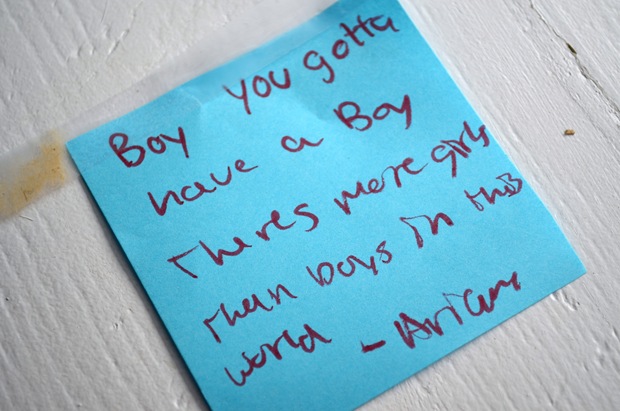 Boy you gotta
have a Boy
Theres more girls
than boys in this
world - Ariam